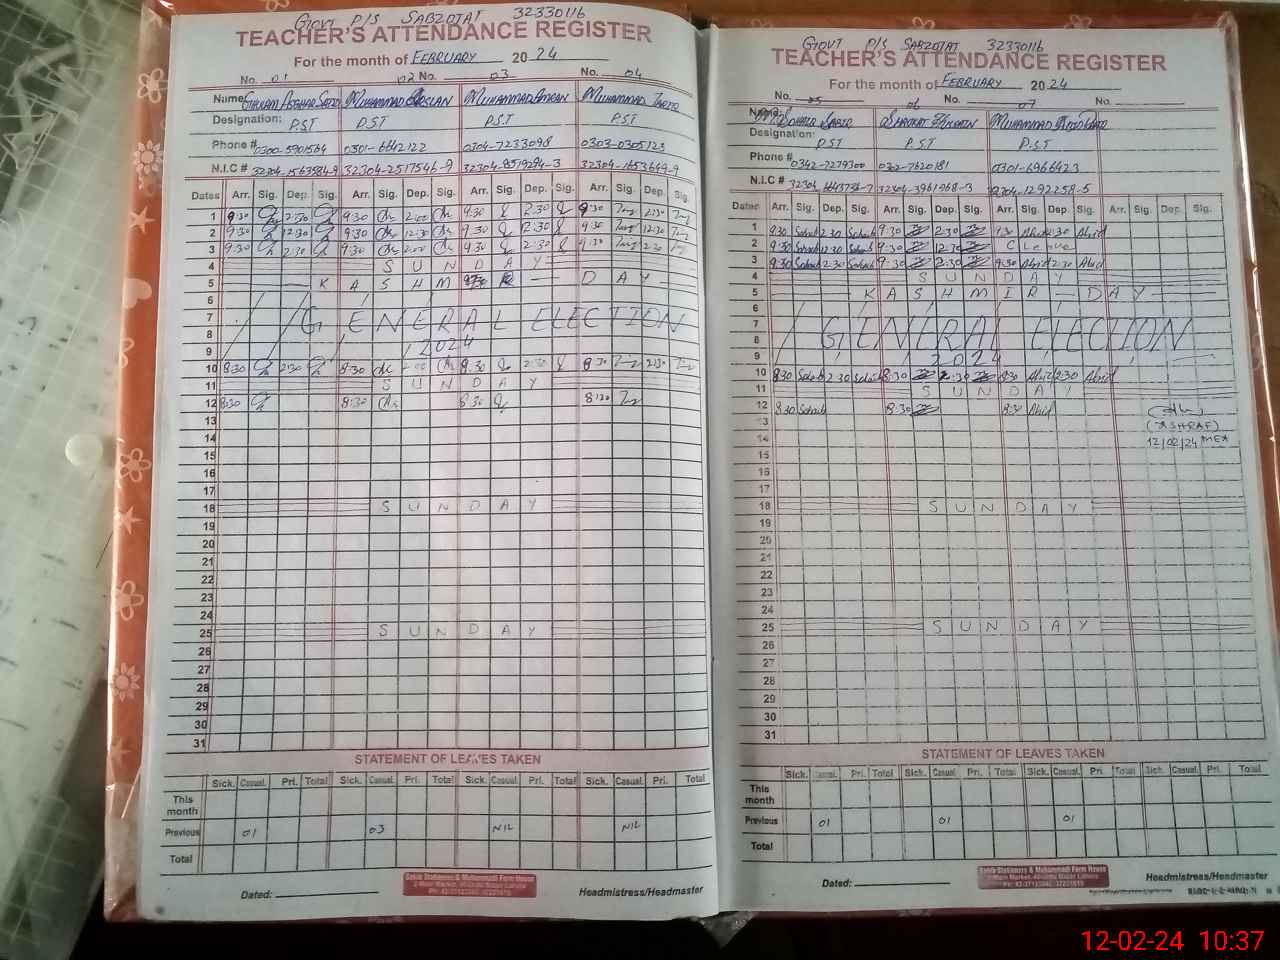 GOVT P/S SABZOTAT 32330116
TEACHER'S ATTENDANCE REGISTER
For the month of FEBRUARY 2024
No. 01 02 No. 03 No. 04
Name MUHAMMAD MUHAMMAD IMRAN MUHAMMAD TARIQ
Designation: P.S.T P.S.T P.S.T P.S.T
Phone # 0300-5901564 0301-6642122 0304-7233098 0303-0305123
N.I.C # 32304-1563584-9 32304-2517546-9 32304-8519294-3 32304-1653649-9
Dates Arr. Sig. Dep. Sig. Arr. Sig. Dep. Sig. Arr. Sig. Dep. Sig. Arr. Sig. Dep. Sig.
1 9:30 2:30 9:30 2:00 9:30 2:30 9:30 2:30
2 9:30 12:30 9:30 12:30 9:30 12:30 9:30 12:30
3 9:30 2:30 9:30 2:00 9:30 2:30 9:30 2:30
4 SUNDAY
5 KASHMIR DAY
6
7 GENERAL ELECTION
8
9 2024
10 8:30 2:30 8:30 2:00 8:30 2:30 8:30 2:30
11 SUNDAY
12 8:30 8:30 8:30 8:30
13
14
15
16
17
18 SUNDAY
19
20
21
22
23
24
25 SUNDAY
26
27
28
29
30
31
STATEMENT OF LEAVES TAKEN
Sick. Casual. Pri. Total Sick. Casual. Pri. Total Sick. Casual. Pri. Total Sick. Casual. Pri. Total
This month
Previous 01 03 NIL NIL
Total
Dated:
Sakib Stationers & Muhammadi Form House
2-Main Market, 40-Urdu Bazar Lahore
Headmistress/Headmaster
GOVT P/S SABZOTAT 32330116
TEACHER'S ATTENDANCE REGISTER
For the month of FEBRUARY 2024
No. 05 06 No. 07 No.
Name MUHAMMAD
Designation: P.S.T P.S.T P.S.T
Phone # 0342-7279300 0301-6966423
N.I.C # 32304-3961968-3 32304-1292258-5
Dates Arr. Sig. Dep. Sig. Arr. Sig. Dep. Sig. Arr. Sig. Dep. Sig. Arr. Sig. Dep. Sig.
1 8:30 Sohaib 2:30 Sohaib 9:30 2:30 9:30 Abid 2:30 Abid
2 9:30 Sohaib 12:30 Sohaib 9:30 12:30 C Leave
3 9:30 Sohaib 2:30 Sohaib 9:30 2:30 9:30 Abid 2:30 Abid
4 SUNDAY
5 KASHMIR - DAY
6
7 GENERAL ELECTION
8
9 2024
10 8:30 Sohaib 2:30 Sohaib 8:30 2:30 8:30 Abid 2:30 Abid
11 SUNDAY
12 8:30 Sohaib 8:30 8:30 Abid
13 (ASHRAF)
14 12/02/24 MEA
15
16
17
18 SUNDAY
19
20
21
22
23
24
25 SUNDAY
26
27
28
29
30
31
STATEMENT OF LEAVES TAKEN
Sick. Casual. Pri. Total Sick. Casual. Pri. Total Sick. Casual. Pri. Total Sick. Casual. Pri. Total
This month
Previous 01 01 01
Total
Dated:
Sakib Stationers & Muhammadi Form House
2-Main Market, 40-Urdu Bazar Lahore
Headmistress/Headmaster
12-02-24 10:37